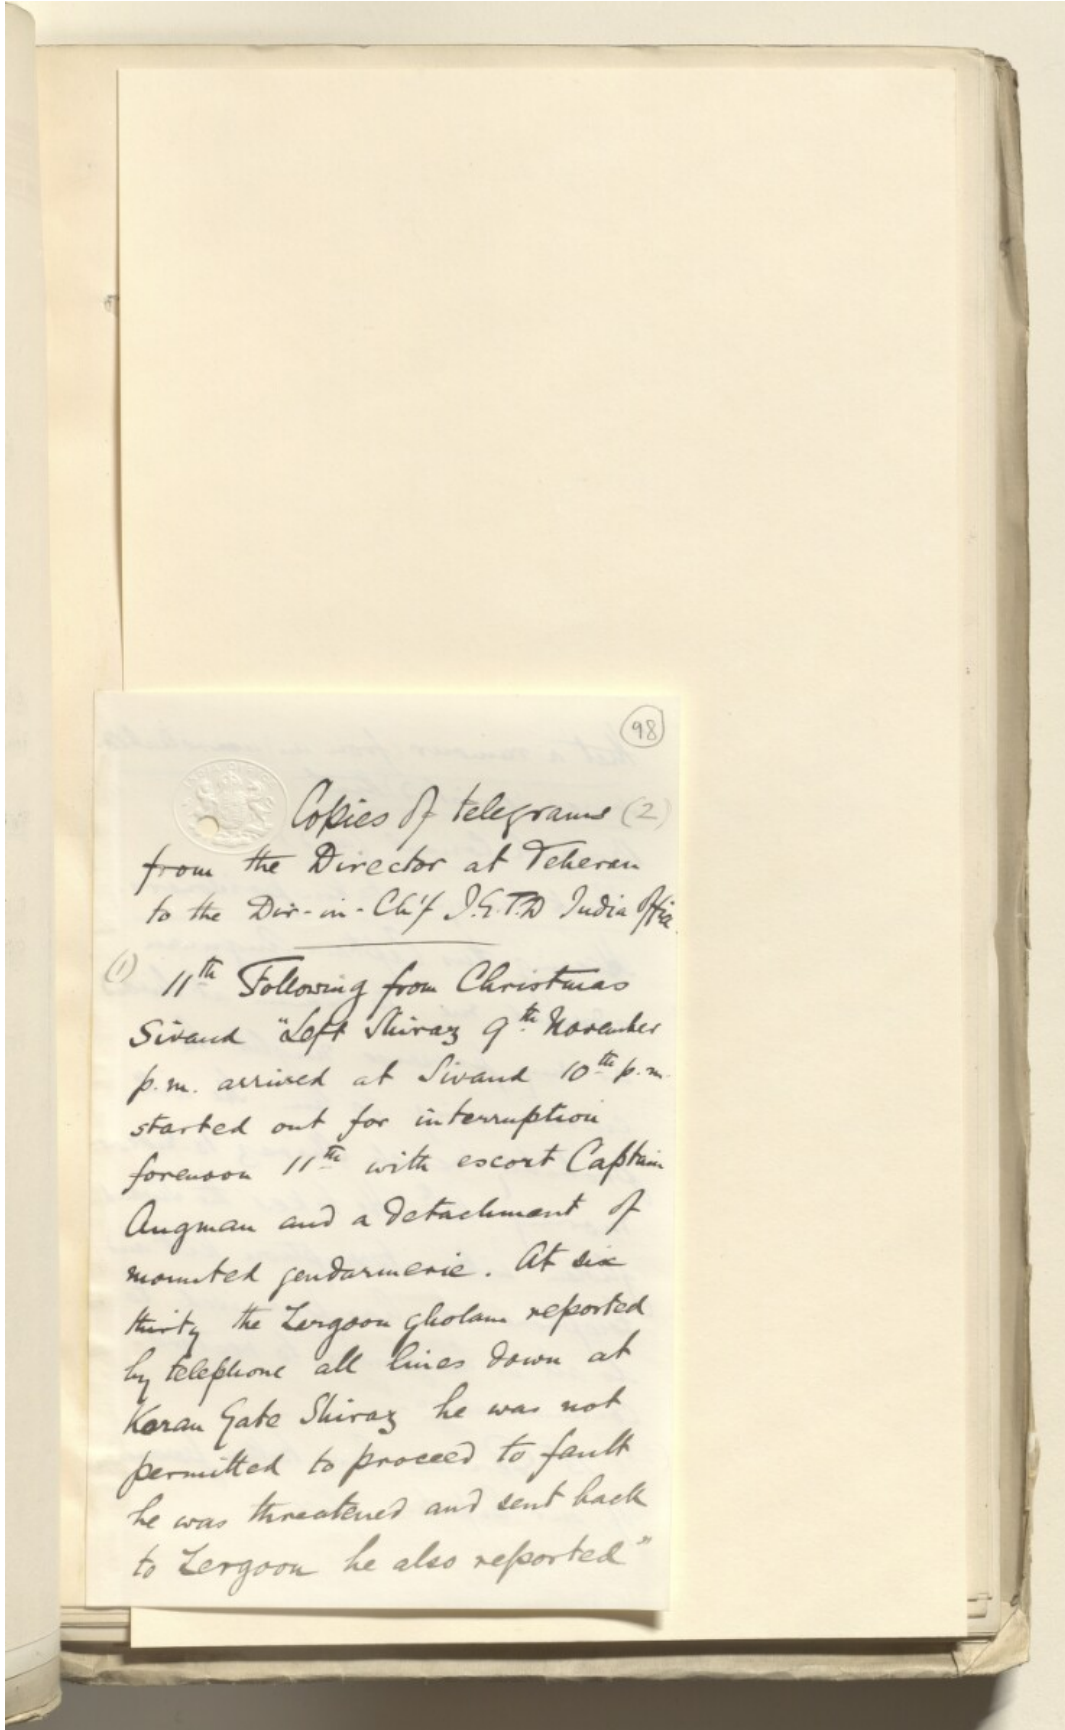 98
Copies of telegrams (2)
from the Director at Teheran
to the Dir-in-Ch'f I.E.T.D India Office
(1)
11th Following from Christmas
Sivand "Left Shiraz 9th November
p.m. arrived at Sivand 10th p.m.
started out for interruption
forenoon 11th with escort Captain
Angman and a detachment of
mounted gendarmerie. At six
thirty the Zergoon gholam reported
by telephone all lines down at
Koran Gate Shiraz he was not
permitted to proceed to fault
he was threatened and sent back
to Zergoon he also reported"